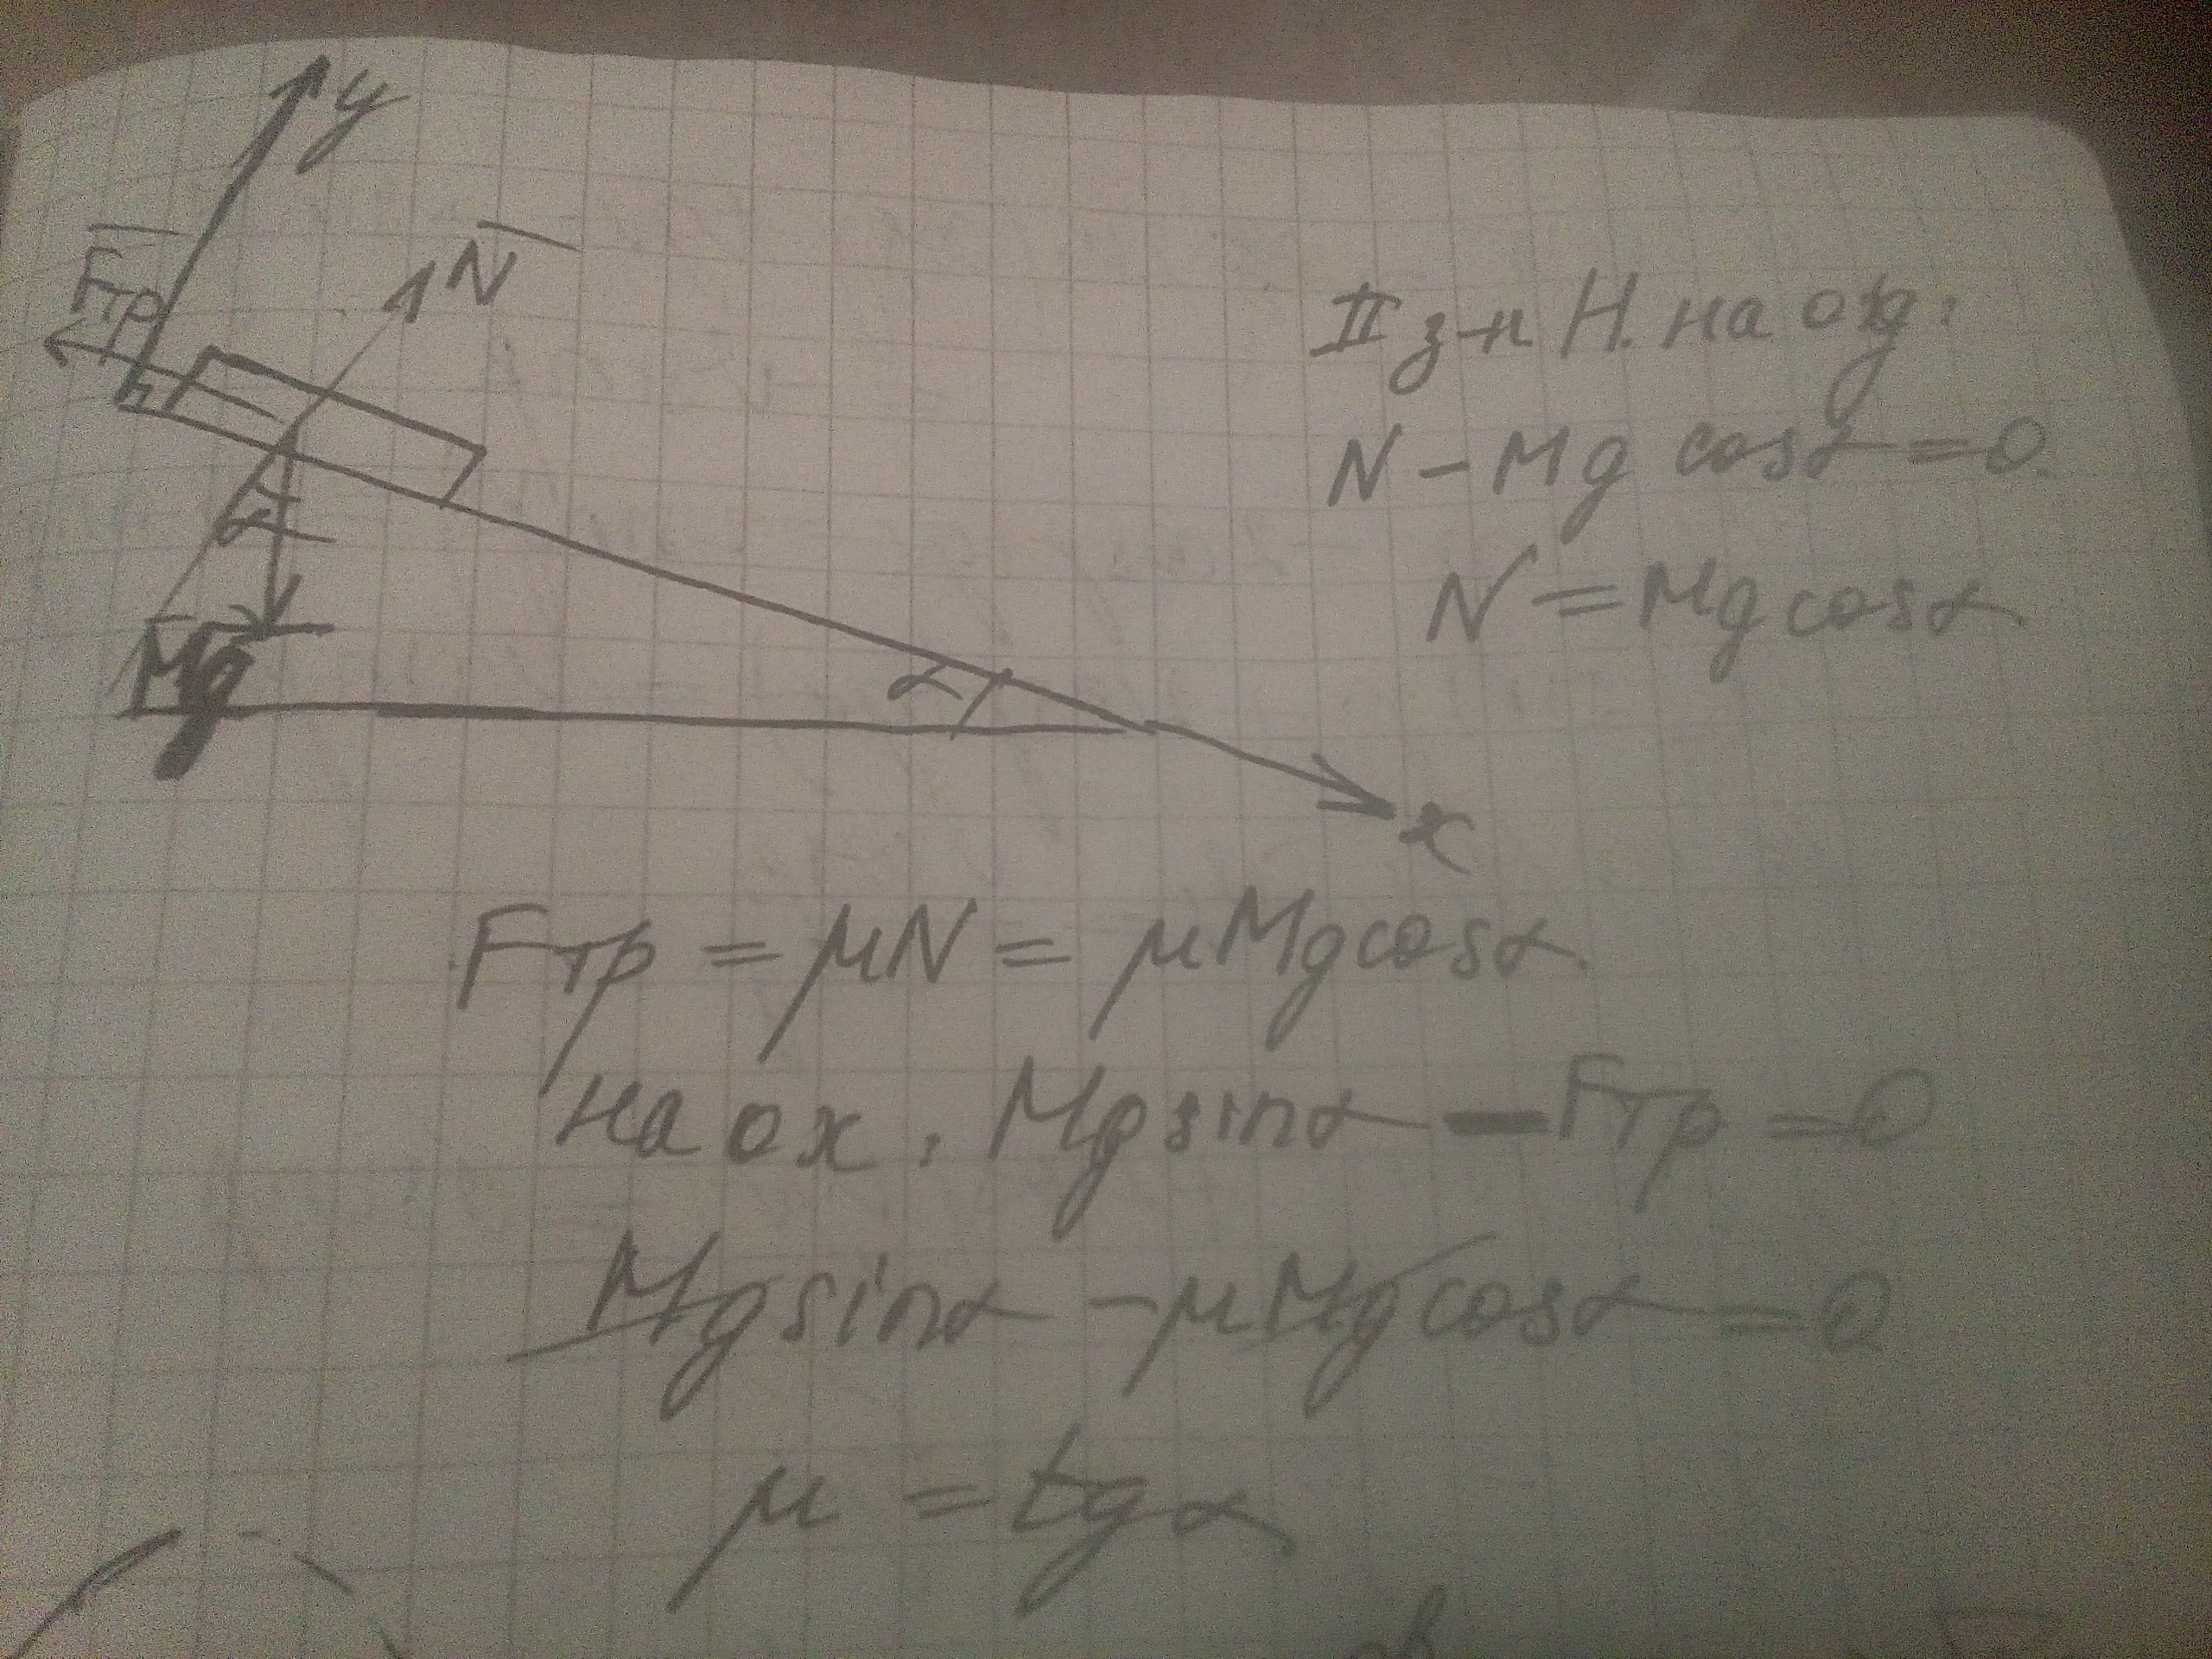 y
Fтр
N
II з-н Н. на oy:
N - Mg cosα = 0.
N = Mg cosα
α
Mg
α
x
Fтр = μN = μMg cosα.
на ox: Mg sinα - Fтр = 0
Mg sinα - μMg cosα = 0
μ = tgα